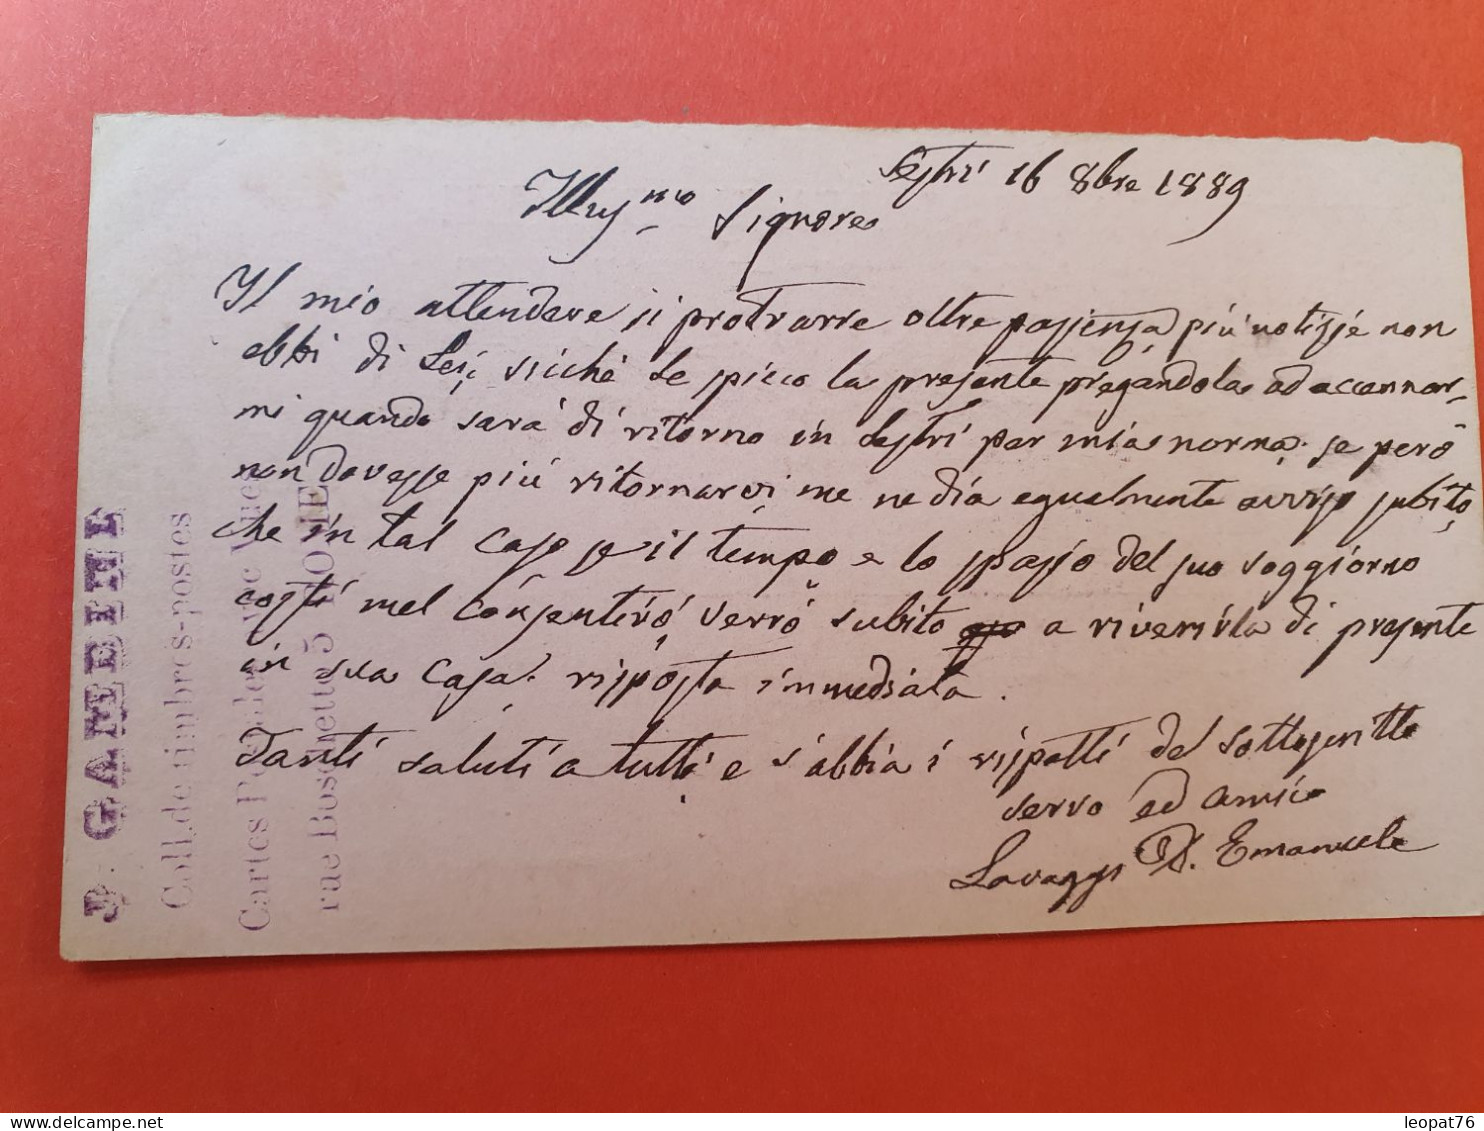 Sestri 16 8bre 1889
Illus.mo Signore
Il mio attendere si protrarre oltre passenza, più notizie non
ebbi di Lei, sicchè Le spicco la presente pregandola ad accennar-
mi quando sarà di ritorno in Sestri per mia norma, se però
non dovesse più ritornarvi, me ne dia egualmente avviso subito,
che in tal caso se il tempo e lo spasso del suo soggiorno
costì mel consentirà, verrò subito a riverirla di presente
in sua casa. risposta immediata.
Tanti saluti a tutti e s'abbia i rispetti del sottoscritto
servo ed amico
Lavaggi D. Emanuele
J. GAMBINI
Coll. de timbres-postes
Cartes Postales
rue Boschetto 5